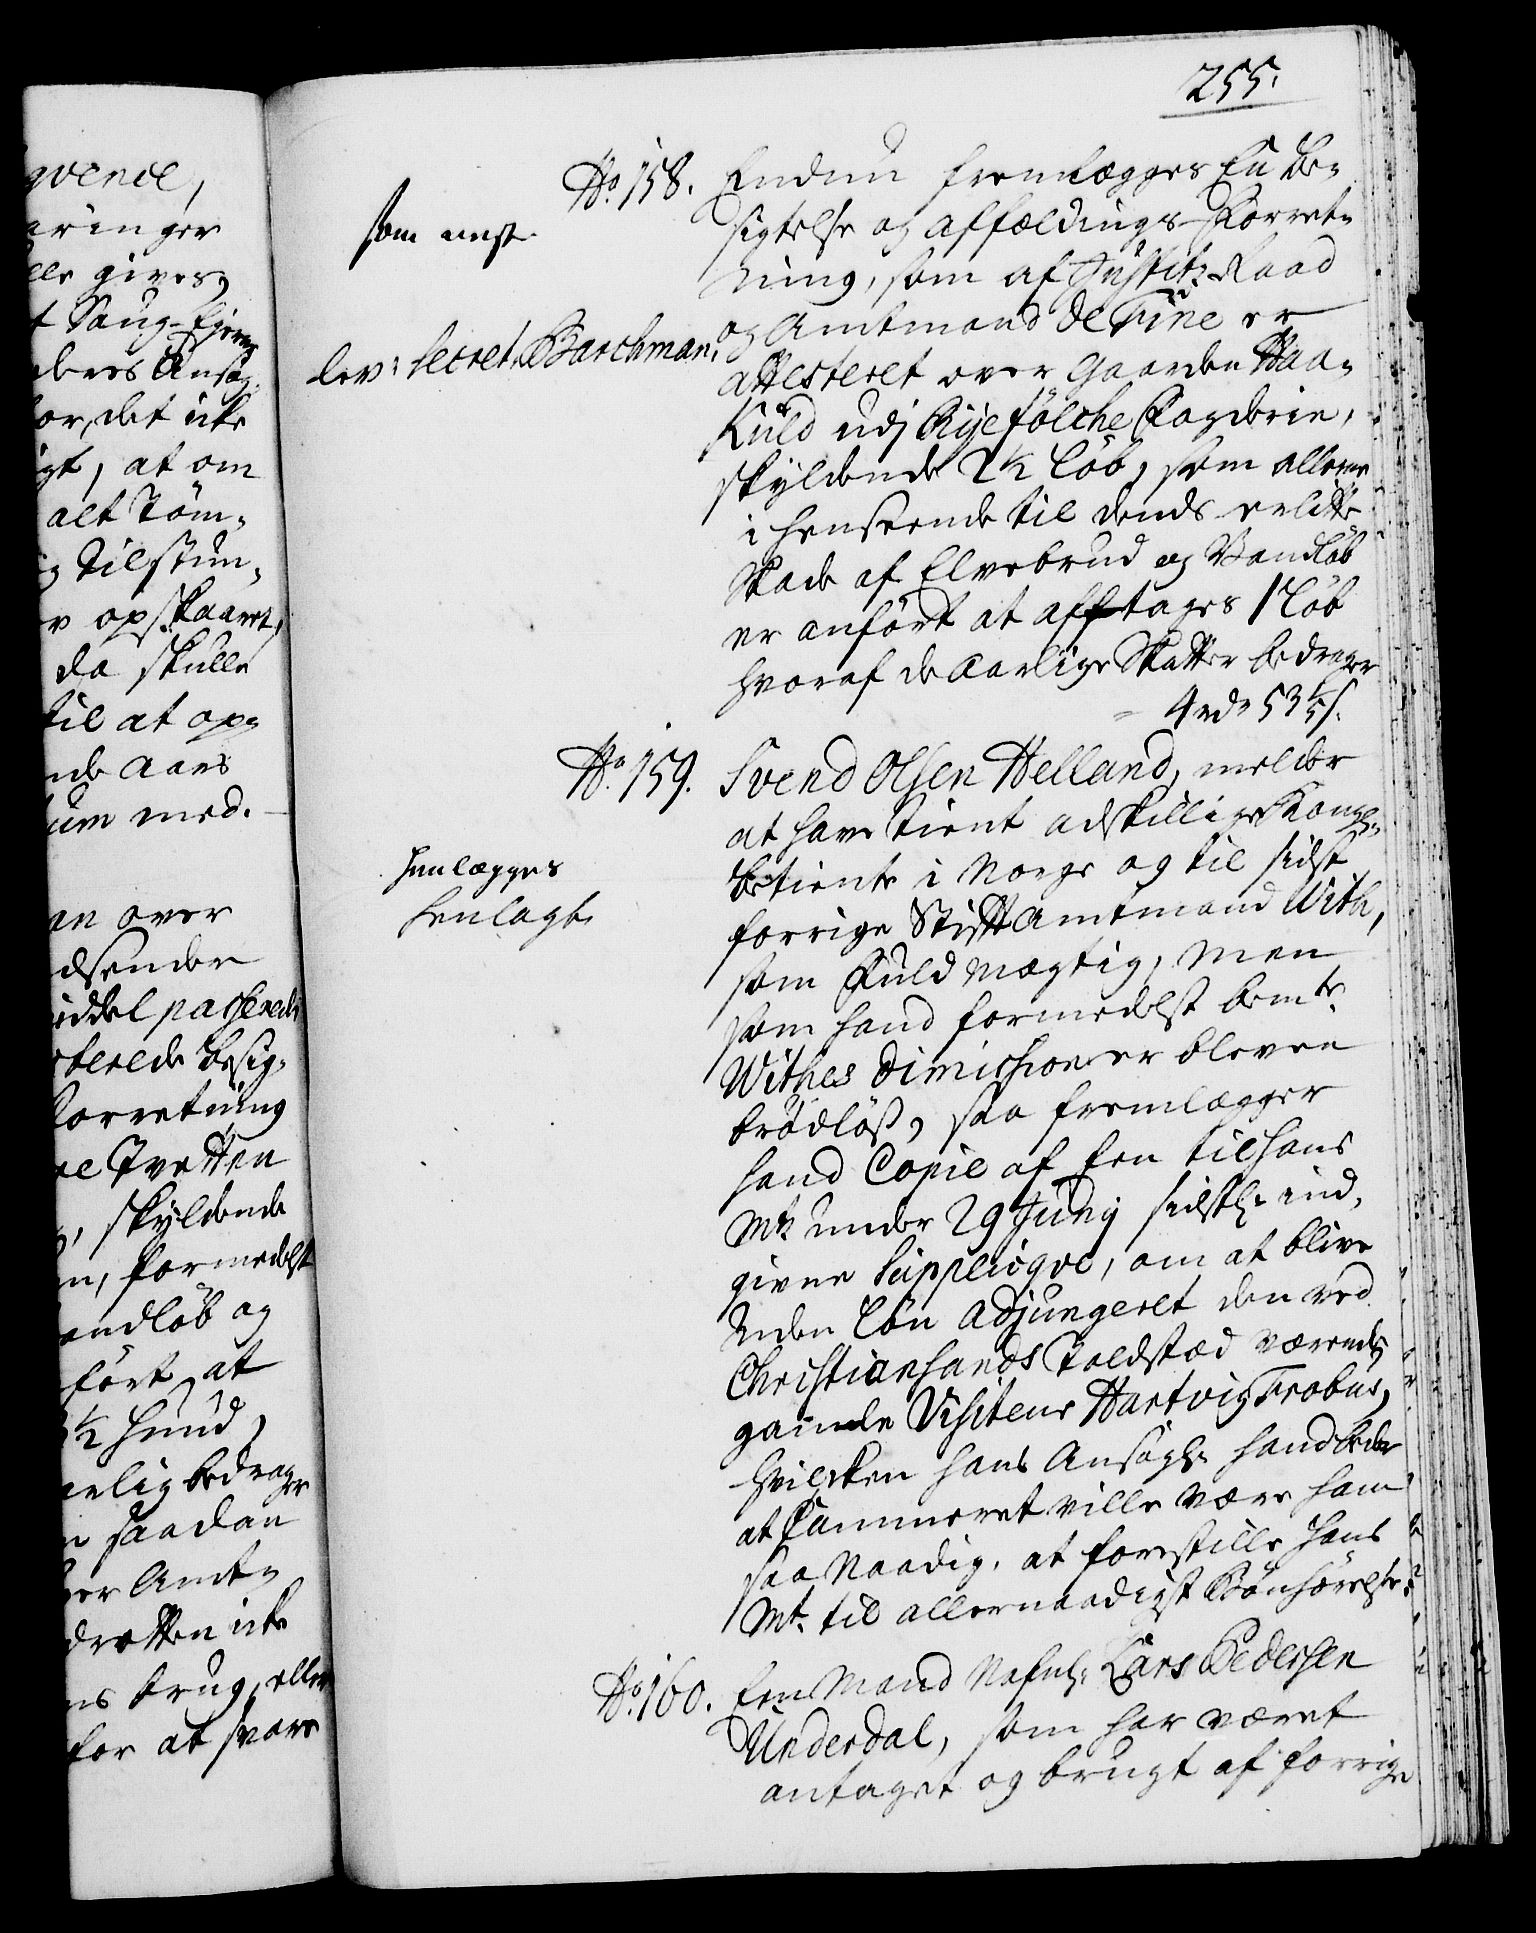 255.
qvence,
aringer
lle gives,
t Saug-Ejerne
deres Ansøg-
for, det icke
igt, at om
alt Töm-
g Tilstun-
v opskaaret,
da skulle
til at op-
nde Aars
med.
an over
dsender
iddel passerede
sterede Besig-
Forretning
ne Tvetten
, skyldende
n, formedelst
andløb og
ført, at
½ Hund,
arlig bedrager
n saadan
ver Amt-
drotten icke
ns brug, eller
for at svare
No. 158. Endnu fremlægges En Be-
sigtelse og Affældings-Forret-
ning, som af Justitz-Raad
og Amtmand de Fine er
attesteret over Gaarden Haa-
Kuld udj Ryefölche Fogderie,
skyldende 2½ Löb, som allene
i henseende til dends erlitte
Skade af Elvebrud og Vandløb
er anført at afftages 1 Löb
hvoraf de Aarlige Skatter bedrager
4 rdr 53 ⅕ s.
som næst
lev: Secret: Barchman.
No. 159. Svend Olsen Helland, melder
at have tient adskillige Kongl:
betiente i Norge og til sidst
forrige Stift Amtmand With,
som Fuldmægtig, Men
som hand formedelst bemte
Withes Dimission er bleven
brödlös, saa fremlægger
hand Copie af Een til Hans
Mt: under 29 Juny sidstl: ind-
given Supplicqve, om at blive
uden Lön adjungeret den ved
Christianhands Toldstæd værende
gamle Visiteur Hartvig Frobus,
hvilcken hans Ansøgl: hand beder
at Cammeret ville være ham
saa Naadig, at forestille Hans
Mt: til allernaadigst Bönhörelse.
Henlægges
henlagt
No. 160. Een Mand Nafnl: Lars Pedersen
Underdal, som har været
antaget og brugt af forrige